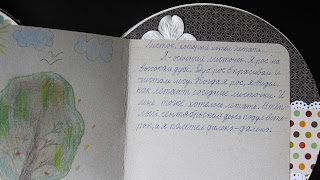 Листок, который умеет летать.
Я - осенний листочек. Я рос на
высоком дубе. Дуб рос в красивом и
лесу. Когда я рос, я видел,
как летают соседние листочки. И
мне тоже хотелось летать. В тёп-
лый сентябрьский день подул вете-
рок, и я полетел далеко-далеко.